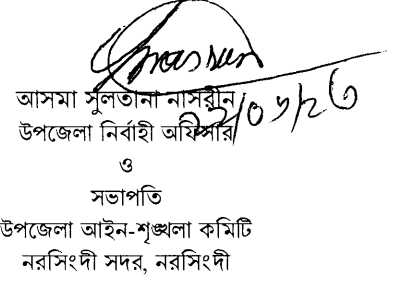 আসমা সুলতানা নাসরীন
উপজেলা নির্বাহী অফিসার
ও
সভাপতি
উপজেলা আইন-শৃঙ্খলা কমিটি
নরসিংদী সদর, নরসিংদী